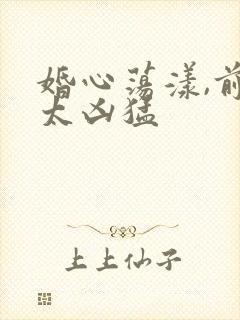 婚心荡漾,前
太凶猛
上上仙子